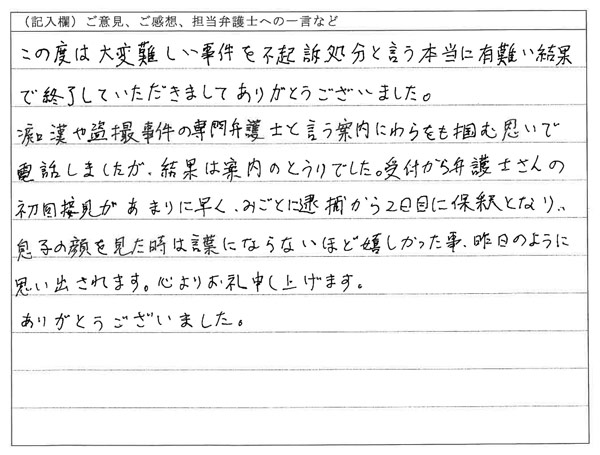 （記入欄）ご意見、ご感想、担当弁護士への一言など
この度は大変難しい事件を不起訴処分と言う本当に有難い結果
で終了していただきましてありがとうございました。
痴漢や盗撮事件の専門弁護士と言う案内にわらをも掴む思いで
電話しましたが、結果は案内のとうりでした。受付から弁護士さんの
初回接見があまりに早く、みごとに逮捕から2日目に保釈となり、
息子の顔を見た時は言葉にならないほど嬉しかった事、昨日のように
思い出されます。心よりお礼申し上げます。
ありがとうございました。